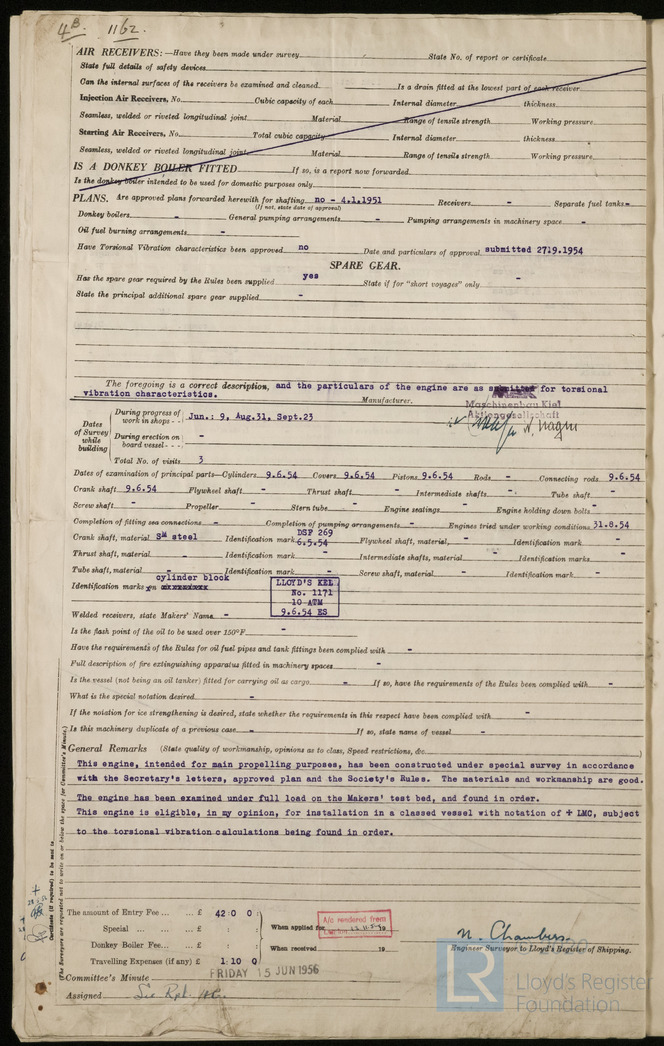 4B. 1162.
AIR RECEIVERS:—Have they been made under survey State No. of report or certificate
State full details of safety devices
Can the internal surfaces of the receivers be examined and cleaned Is a drain fitted at the lowest part of each receiver
Injection Air Receivers, No. Cubic capacity of each Internal diameter thickness
Seamless, welded or riveted longitudinal joint Material Range of tensile strength Working pressure
Starting Air Receivers, No. Total cubic capacity Internal diameter thickness
Seamless, welded or riveted longitudinal joint Material Range of tensile strength Working pressure
IS A DONKEY BOILER FITTED If so, is a report now forwarded
Is the donkey boiler intended to be used for domestic purposes only
PLANS. Are approved plans forwarded herewith for shafting no - 4.1.1951 Receivers - Separate fuel tanks -
(If not, state date of approval)
Donkey boilers - General pumping arrangements - Pumping arrangements in machinery space -
Oil fuel burning arrangements -
Have Torsional Vibration characteristics been approved no Date and particulars of approval submitted 2719.1954
SPARE GEAR.
Has the spare gear required by the Rules been supplied yes State if for "short voyages" only -
State the principal additional spare gear supplied -
The foregoing is a correct description, and the particulars of the engine are as submitted for torsional
vibration characteristics. Manufacturer.
Maschinenbau Kiel
Aktiengesellschaft
Dates of Survey while building
During progress of work in shops - - Jun.: 9, Aug.31, Sept.23
During erection on board vessel - - - -
Total No. of visits 3
Dates of examination of principal parts—Cylinders 9.6.54 Covers 9.6.54 Pistons 9.6.54 Rods - Connecting rods 9.6.54
Crank shaft 9.6.54 Flywheel shaft - Thrust shaft - Intermediate shafts - Tube shaft -
Screw shaft - Propeller - Stern tube - Engine seatings - Engine holding down bolts -
Completion of fitting sea connections - Completion of pumping arrangements - Engines tried under working conditions 31.8.54
Crank shaft, material SM steel Identification mark DSF 269 6.5.54 Flywheel shaft, material, - Identification mark -
Thrust shaft, material - Identification mark - Intermediate shafts, material - Identification marks -
Tube shaft, material - Identification mark - Screw shaft, material - Identification mark -
Identification marks on cylinder block
LLOYD'S KEL
No. 1171
10 ATM
9.6.54 ES
Welded receivers, state Makers' Name -
Is the flash point of the oil to be used over 150°F. -
Have the requirements of the Rules for oil fuel pipes and tank fittings been complied with -
Full description of fire extinguishing apparatus fitted in machinery spaces -
Is the vessel (not being an oil tanker) fitted for carrying oil as cargo - If so, have the requirements of the Rules been complied with -
What is the special notation desired -
If the notation for ice strengthening is desired, state whether the requirements in this respect have been complied with -
Is this machinery duplicate of a previous case - If so, state name of vessel -
General Remarks (State quality of workmanship, opinions as to class, Speed restrictions, &c. )
This engine, intended for main propelling purposes, has been constructed under special survey in accordance
with the Secretary's letters, approved plan and the Society's Rules. The materials and workmanship are good.
The engine has been examined under full load on the Makers' test bed, and found in order.
This engine is eligible, in my opinion, for installation in a classed vessel with notation of + LMC, subject
to the torsional vibration calculations being found in order.
Certificate (if required) to be sent to
(The Surveyors are requested not to write on or below the space for Committee's Minute.)
The amount of Entry Fee ... ... £ 42:0 0:
Special ... ... ... £ : :
Donkey Boiler Fee... ... £ : :
Travelling Expenses (if any) £ 1:10 0
When applied for
A/c rendered from
When received 19
N. Chambers.
Engineer Surveyor to Lloyd's Register of Shipping.
Committee's Minute FRIDAY 15 JUN 1956
Assigned See Rpt.
LR
Lloyd's Register
Foundation